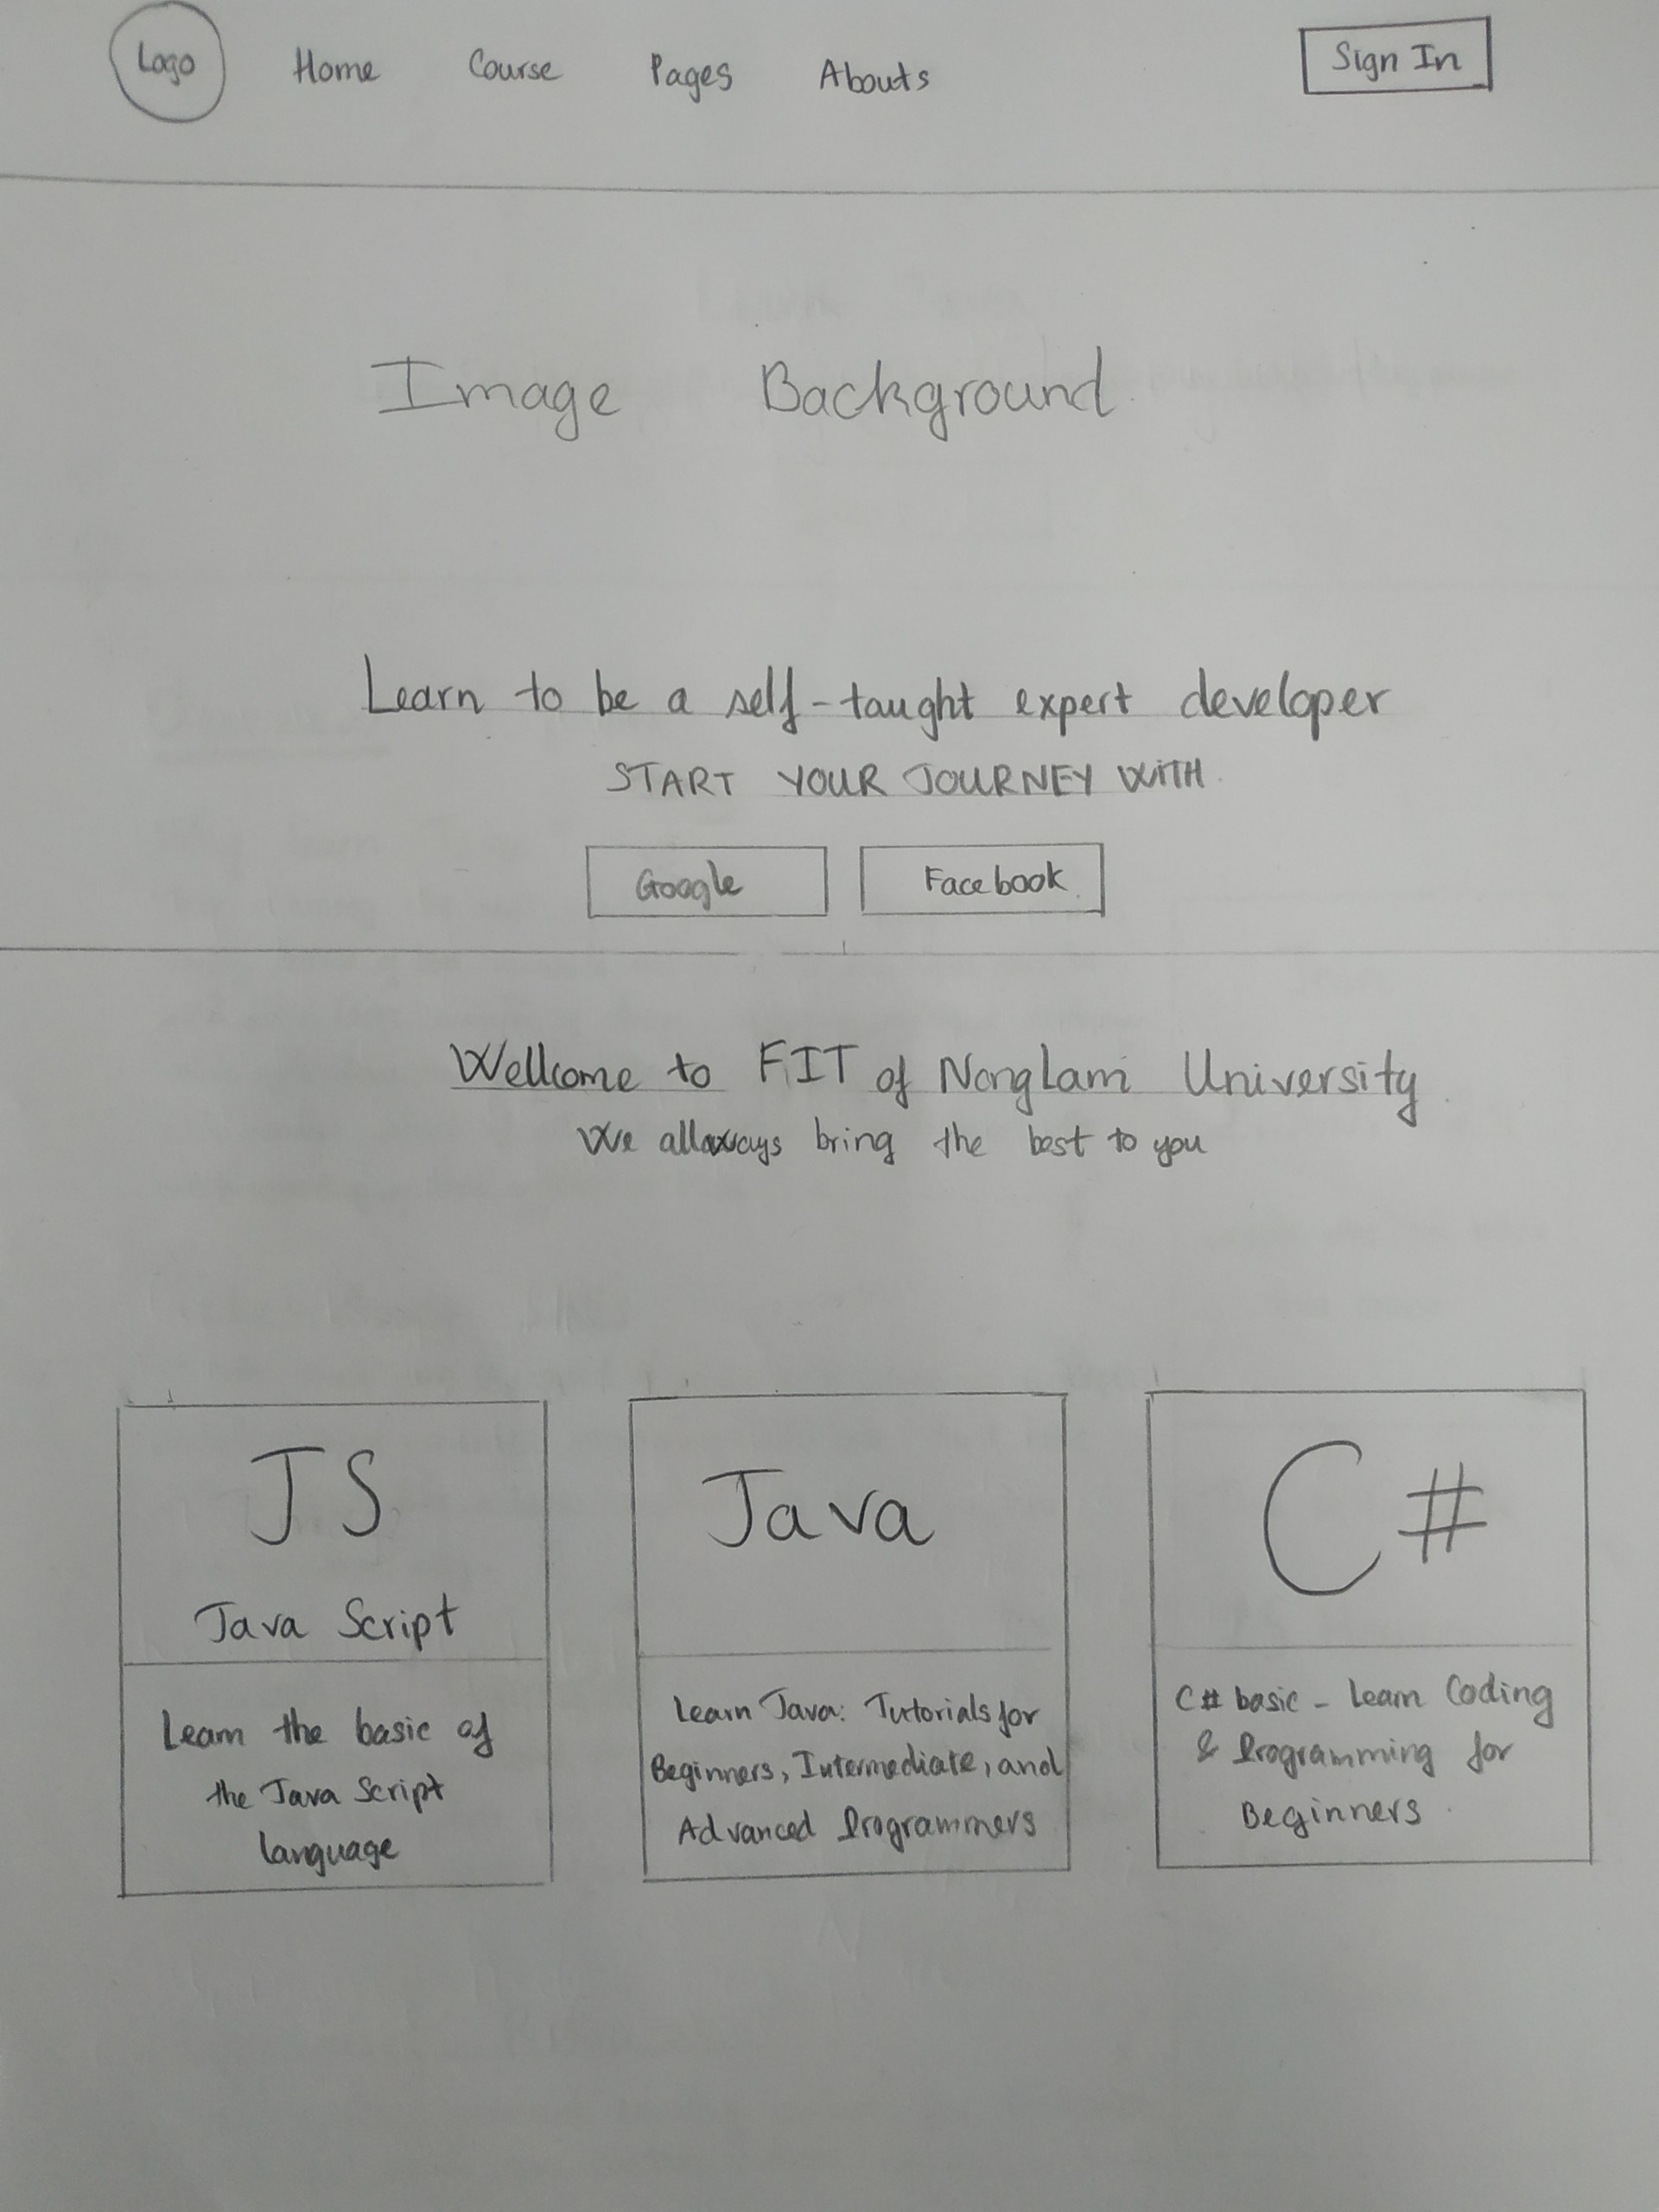 Logo Home Course Pages Abouts Sign In
Image Background
Learn to be a self-taught expert developer
START YOUR JOURNEY WITH
Google Facebook
Wellcome to FIT of NongLam University
We allways bring the best to you
JS
Java Script
Learn the basic of
the Java Script
language
Java
Learn Java: Tutorials for
Beginners, Intermediate, and
Advanced Programmers
C#
C# basic - Learn Coding
& Programming for
Beginners